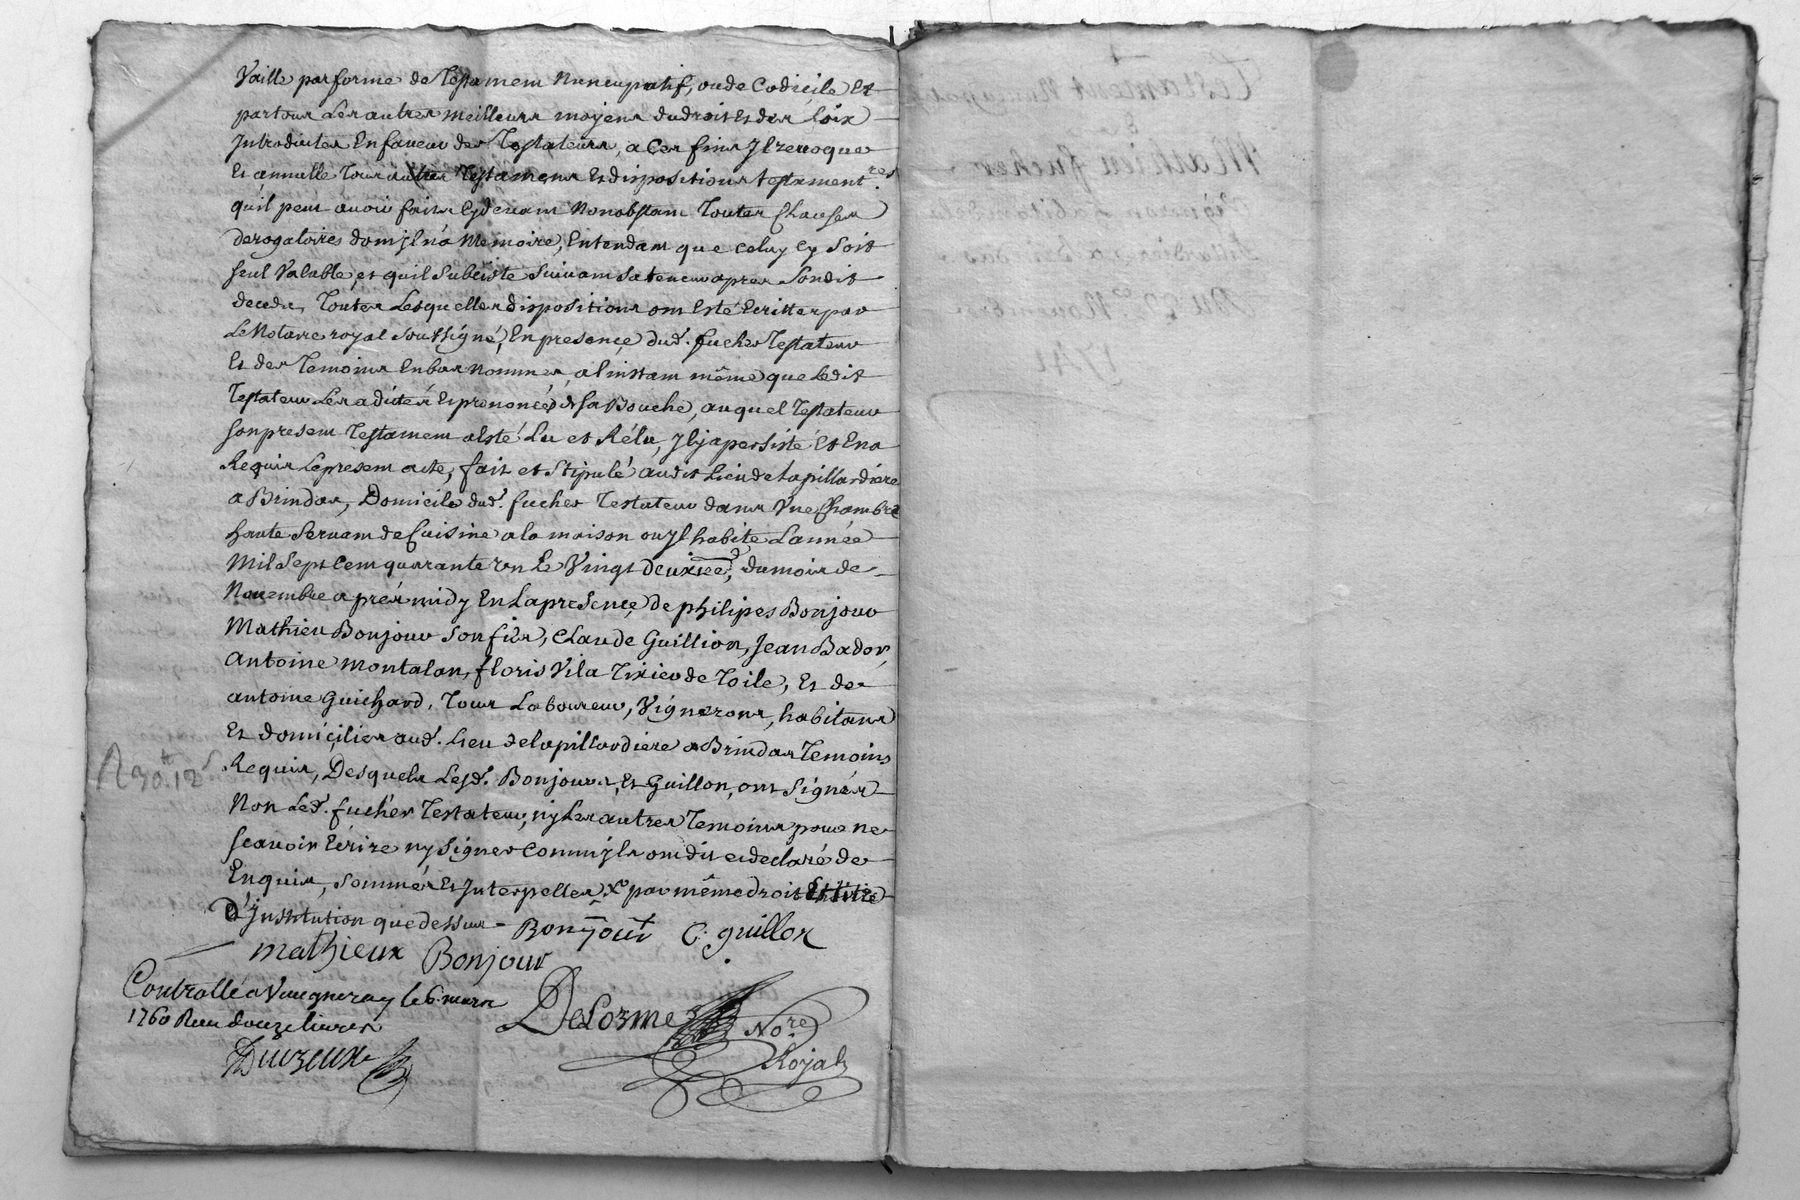 Vaille par forme de Testament Nuncupatif, ou de Codicile Et
par tous Les autres meilleurs moyens du droit Et des Loix
Introduites En faveur des Testateurs, a Ces fins Il revoque
Et annulle Tous autres Testamens Et dispositions testament.res
qu'il peut avoir faits Cydevant Nonobstant Toutes Clauses
derogatoires dont jl n'a Memoire, Entendant que celuy Cy Soit
seul Valable, et quil Subciste Suivant sa teneur apres Sondit
deceds, Toutes Lesquelles dispositions ont Esté Ecrittes par
Le Notaire royal Soussigné, En presence dud. fucher Testateur
Et des Temoins En bas Nommes, a l'instant même que Ledit
Testateur Les a dictés Et prononcés de sa Bouche, auquel Testateur
son present Testament a Esté Lu et Rélu, Il y a persisté Et En a
Requis Le present acte, fait et Stipulé audit Lieu de Lapillardiere
a Brindas, Domicile dud. fucher Testateur dans Une Chambre
haute Servant de Cuisine a la maison ou Jl habite L'année
Mil Sept Cent quarante un Le Vingt deuxiee, du mois de
Novembre aprés midy En La presence de philipes Bonjour
Mathieu Bonjour Son fils, Claude Guillion, Jean Bador,
Antoine Montalan, floris Vila Tixier de Toile, Et de
antoine Guichard, Tous Laboureur, Vignerons, habitans
Et domiciliés aud. Lieu de Lapillardiere a Brindas Temoins
Requis, Desquels Lesd. Bonjours, Et Guillon, ont Signés
Non Led. fuchér Testateur, ny Les autres Temoins pour ne
scavoir Ecrire ny Signer Comm'jls ont dit et declaré de
Enquis, Sommés Et Interpelles X par même droit Et titre
D'Institution que dessus - Bonjour C. guillon
mathieux Bonjour
R 30.tt 12 s
Controllé a Vaugneray le 6. mars
1760 Reçu douze livres
DeLorme No.re
Royal
Testament Nuncupatif
De
Mathieu fucher
Vigneron habitant de la
pillardiere a Brindas
Du 22.e Novembre
1741